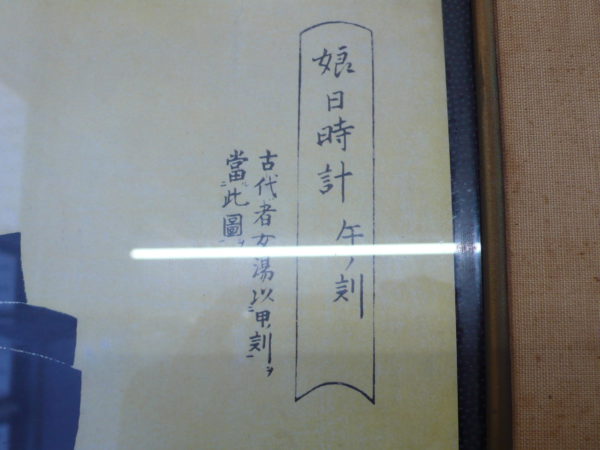 娘日時計 午ノ刻
古代者女湯以甲刻ヲ
當此圖